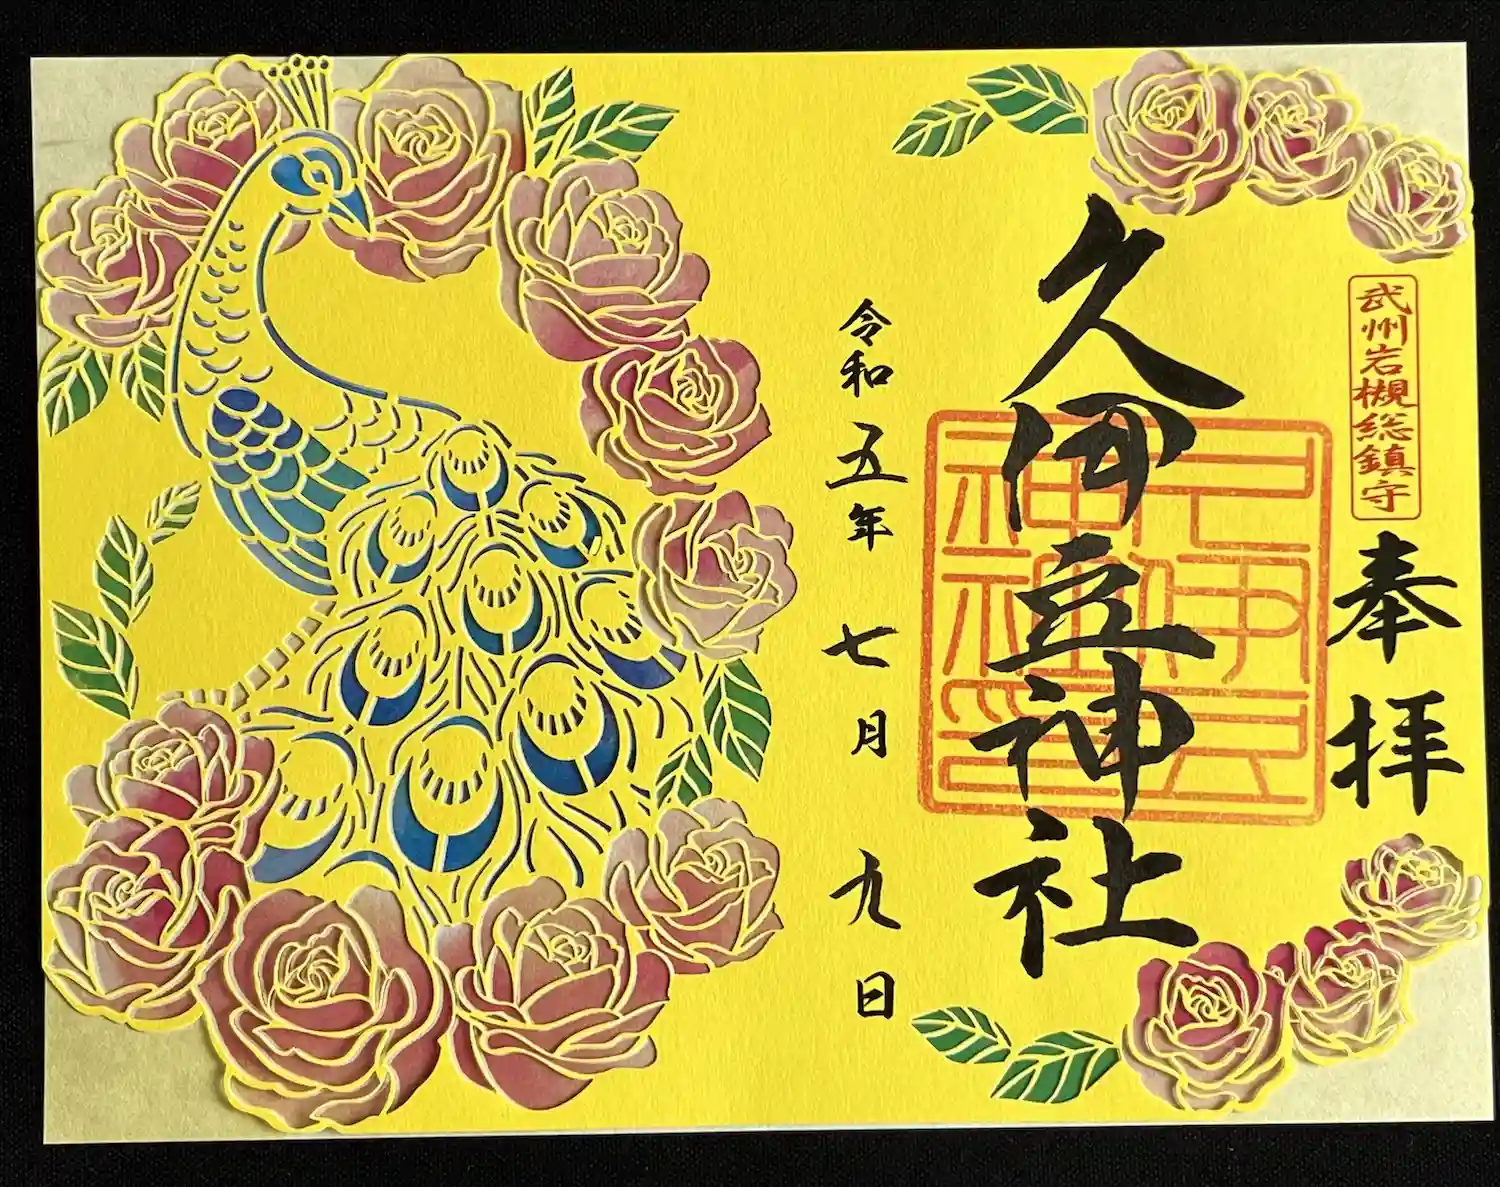 武州岩槻総鎮守
奉拝
久伊豆神社
久伊豆神社印
令和五年七月九日